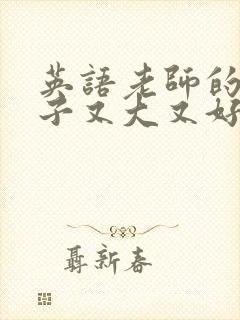 英語老師的
子又大又好
聶新春